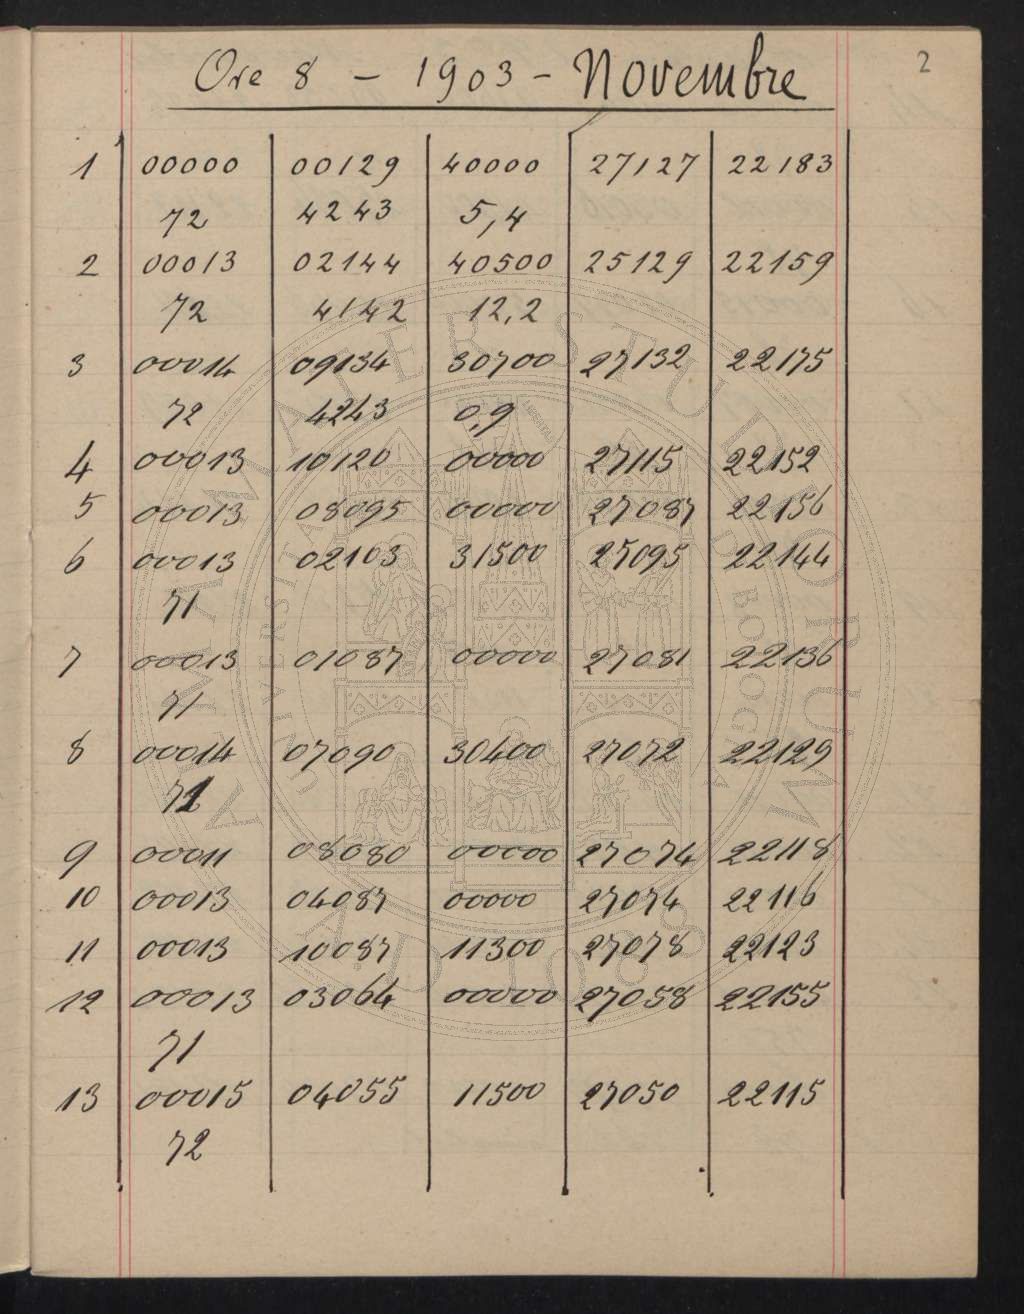 2
Ore 8 - 1903 - Novembre
1 00000 00129 40000 27127 22183
72 4243 5,4
2 00013 02144 40500 25129 22159
72 4142 12,2
3 00014 09134 30700 27132 22175
72 4243 0,9
4 00013 10120 00000 27115 22152
5 00013 08095 00000 27087 22156
6 00013 02103 31500 25095 22144
71
7 00013 01087 00000 27081 22136
71
8 00014 07090 30400 27072 22129
71
9 00011 08080 00000 27074 22118
10 00013 04087 00000 27074 22116
11 00013 10087 11300 27078 22123
12 00013 03064 00000 27058 22155
71
13 00015 04055 11500 27050 22115
72
ALMA MATER STUDIORUM
UNIVERSITA DI BOLOGNA
A.D. 1088